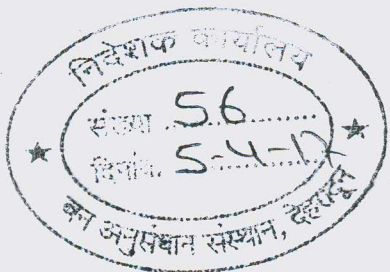 निदेशक कार्यालय
संख्या 56
दिनांक 5-4-17
वन अनुसंधान संस्थान, देहरादून